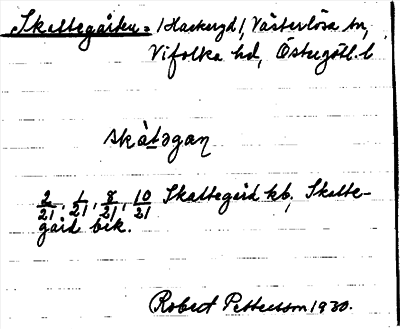 Skattegården = /Hackergd/, Västerlösa sn,
Vifolka hd, Östergötl. l
skàtəgan
2/21, 1/21, 8/21, 10/21 Skattegård kb, Skatte-
gård bek.
Robert Pettersson 1930.